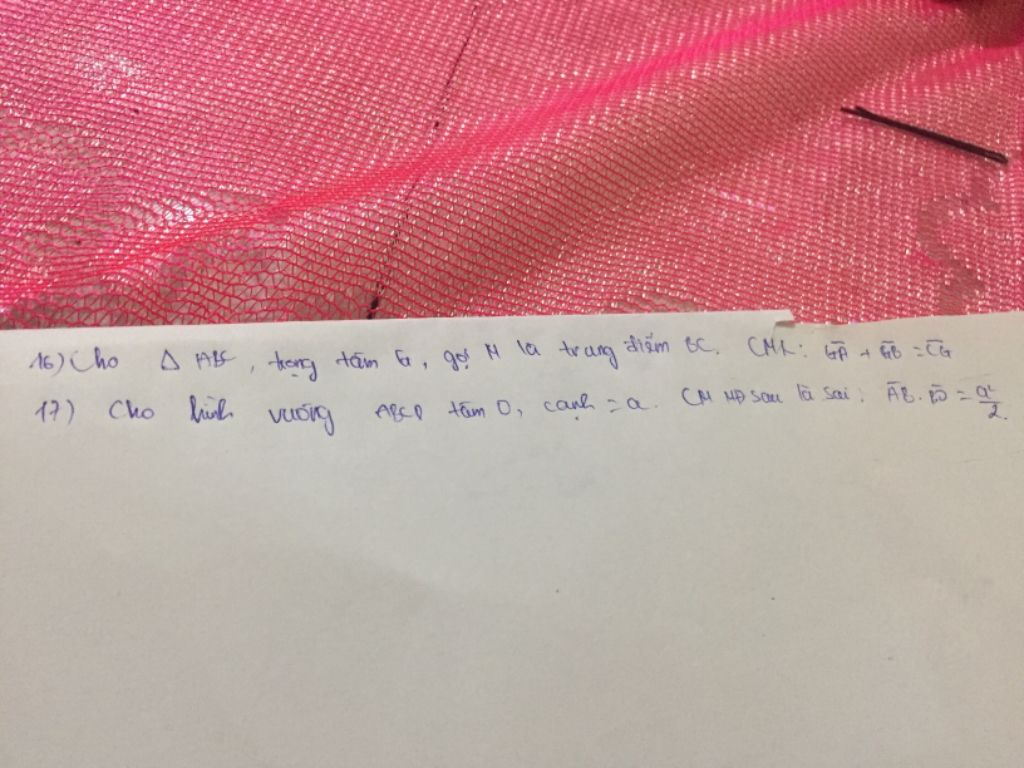 16) Cho Δ ABC, trọng tâm G, gọi M là trung điểm BC. CMR: G̅A̅ + G̅B̅ = C̅G̅
17) Cho hình vuông ABCD tâm O, cạnh = a. CM MĐ sau là sai: A̅B̅.